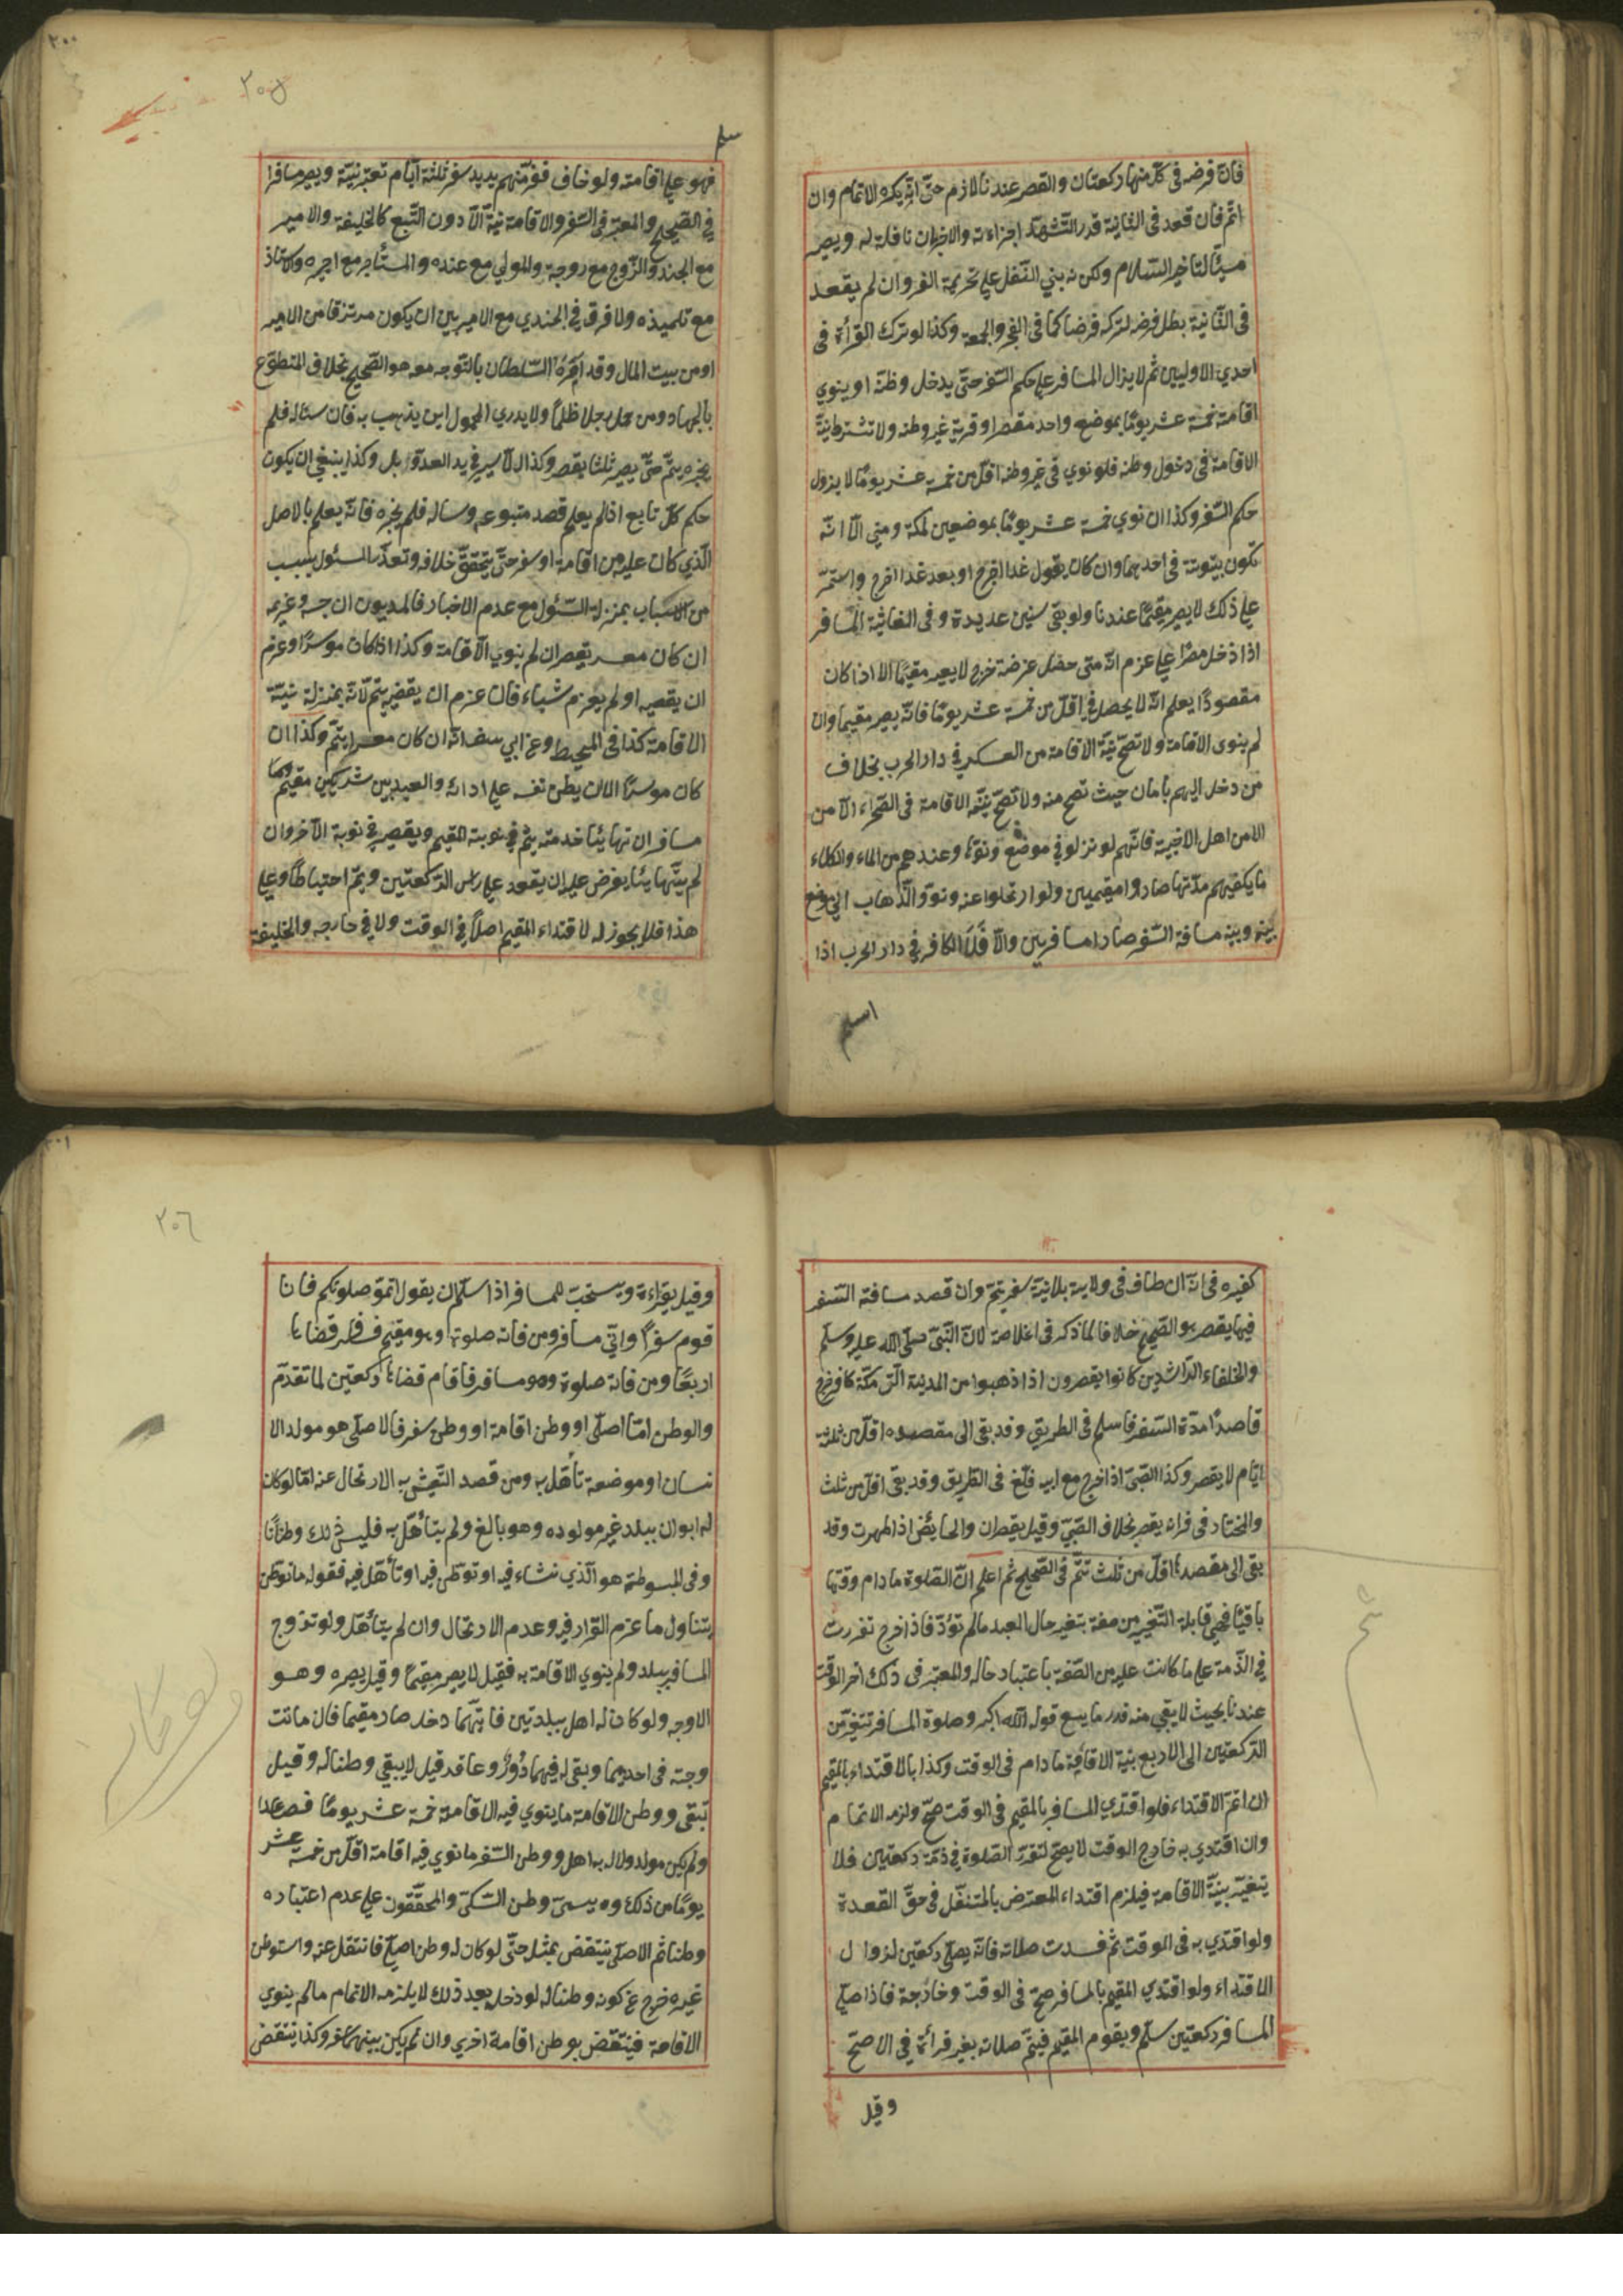 فان فرضه فى كل منها ركعتان والقصر عندنا لازم حتى انه يكره الاتمام وان
اتم فان قعد فى الثانية قدر التشهد اجزاءته والاخريان نافلة له ويصير
مسيئا لتاخير السلام ولكونه بنى النفل على تحريمة الفرض وان لم يقعد
فى الثانية بطل فرضه لتركه فرضا كما فى الفجر والجمعة وكذا لو ترك القرأة فى
احدى الاوليين ثم لا يزال المسافر على حكم السفر حتى يدخل وطنه او ينوي
اقامة خمسة عشر يوما بموضع واحد مصر او قرية غير وطنه ولا تشترط نية
الاقامة فى دخول وطنه فلو نوي فى غير وطنه اقل من خمسة عشر يوما لا يزول
حكم السفر وكذا ان نوي خمسة عشر يوما بموضعين كمكة ومنى الا انه
تكون بيتوتته فى احدهما وان كان يقول غدا اخرج او بعد غد اخرج واستمر
على ذلك لا يصير مقيما عندنا ولو بقى سنين عديدة وفى الغاثية المسافر
اذا دخل مصرا على عزم انه متى حصل غرضه خرج لا يصير مقيما الا اذا كان
مقصودا يعلم انه لا يحصل فى اقل من خمسة عشر يوما فانه يصير مقيما وان
لم ينوى الاقامة ولا تصح نية الاقامة من العسكر فى دار الحرب بخلاف
من دخل اليهم بامان حيث تصح منه ولا تصح نية الاقامة فى الصحراء الا من
الا من اهل الاخبية فانهم لو نزلو فى موضع ونووا وعندهم من الماء والكلاء
ما يكفيهم مدتها صاروا مقيمين ولو ارتحلوا عنه ونووا الذهاب الى موضع
بينه وبينه مسافة السفر صاروا مسافرين والا فلا الكافر فى دار الحرب اذا
اسلم
سلم
٢٠٥
٢٠٠
فهو على اقامته ولو خاف ففر منهم يريد سفر ثلثة ايام تعتبر نيته ويصير مسافرا
فى الصحيح والمعتبر فى السفر والاقامة نية الا دون التبع كالخليفة والامير
مع الجند والزوج مع زوجة والمولي مع عنده والمستأجر مع اجيره والاستاذ
مع تلميذه ولا فرق فى الجندي مع الامير بين ان يكون مرتزقا من الامير
او من بيت المال وقد امره السلطان بالتوجه معه هو الصحيح بخلاف المتطوع
بالجهاد ومن حمل رجلا ظلما ولا يدري المحمول اين يذهب به فان سئاله فلم
يخبره يتم حتى يصير ثلثا يقصر وكذا الاسير فى يد العدو بل وكذا ينبغي ان يكون
حكم كل تابع اذا لم يعلم قصد متبوعه وساله فلم يخبره فانه يعلم بالاصل
الذي كان عليه من اقامة او سفر حتى يتحقق خلافه وتعذر السئول بسبب
من الاسباب بمنزلة السئول مع عدم الاخبار فالمديون ان حبسه غريمه
ان كان معسر يقصر ان لم ينوي الاقامة وكذا اذا كان موسرا وعزم
ان يقضيه او لم يعزم شياء فان عزم ان يقضيه يتم لانه بمنزلة نية
الاقامة كذا فى المحيط وعن ابي يوسف انه ان كان معسرا يتم وكذا ان
كان موسرا الا ان يطئ نفسه على ادائه والعبد بين شريكين مقيم
مسافر ان تهايئا خدمته يتم فى نوبة المقيم ويقصر فى نوبة الاخر وان
لم يتهايئا يفرض عليه ان يقعد على راس الركعتين ويتم احتياطا وعلى
هذا فلا يجوز له لاقتداء المقيم اصلا فى الوقت ولا فى خارجه والخليفة
كغيره فى انه ان طاف فى ولايته بلا نية سفر يتم وان قصد مسافة السفر
فيها يقصر هو الصحيح خلافا لما ذكر فى الخلاصة لان النبي صلى الله عليه وسلم
والخلفاء الراشدين كانوا يقصرون اذا ذهبوا من المدينة الى مكة كافر خرج
قاصدا مدة السفر فاسلم فى الطريق وقد بقى الى مقصده اقل من ثلثة
ايام لا يقصر وكذا الصبى اذا خرج مع ابيه فبلغ فى الطريق وقد بقى اقل من ثلث
والمختار فى فرانه يقصر بخلاف الصبي وقيل يقصران والحائض اذا طهرت وقد
بقى الى مقصدها اقل من ثلث تتم فى الصحيح ثم اعلم ان الصلوة ما دام وقتها
باقيا فهى قابلة التغير من صفة بتغير حال العبد ما لم تؤد فاذا خرج تقررت
فى الذمة على ما كانت عليه من الصفة باعتبار حاله والمعتبر فى ذلك اخر الوقت
عندنا بحيث لا يبقى منه قدر ما يسع قوله الله اكبر وصلوة المسافر تتغير من
الركعتين الى الاربع بنية الاقامة ما دام فى الوقت وكذا بالاقتداء بالمقيم
ان اتم الاقتداء فلو اقتدي المسافر بالمقيم فى الوقت صح ولزمه الاتمام
وان اقتدي به خارج الوقت لا يصح لتقرر الصلوة فى ذمته ركعتين فلا
يتغير بنية الاقامة فيلزم اقتداء المفترض بالمتنفل فى حق القعدة
ولو اقتدي به فى الوقت ثم فسدت صلاته فانه يصلى ركعتين لزوال
الاقتداء ولو اقتدي المقيم بالمسافر صح فى الوقت وخارجة فاذا صلى
المسافر ركعتين سلم ويقوم المقيم فيتم صلاته بغير قرائة فى الاصح
وقيل
٢٠٦
٢٠١
وقيل بقراءة ويستحب للمسافر اذا سلم ان يقول اتمو صلوتكم فانا
قوم سفر واتى مسافر ومن فاته صلوة وهو مقيم فسافر قضاها
اربعا ومن فاته صلوة وهو مسافر فاقام قضاها ركعتين لما تقدم
والوطن اما اصلى او وطن اقامة او وطن سفر فالاصلى هو مولد الا
نسان او موضعة تأهل به ومن قصد التعيش به الارتحال عنه اما لو كان
له ابوان ببلد غير مولوده وهو بالغ ولم يتأهل به فليس ذلك وطنا
وفى المبسوط هو الذي نشاء فيه او توطن فيه او تأهل فيه فقوله ما توطن
يتناول ما عزم القرار فيه وعدم الارتحال وان لم يتأهل ولو تزوج
المسافر ببلد ولم ينوي الاقامة به فقيل لا يصير مقيما وقيل يصير وهو
الاوجه ولو كان له اهل ببلدتين فايتهما دخل صار مقيما فان ماتت
وجته فى احديهما وبقى له فيهما دور وعقار قيل لا يبقي وطنا له وقيل
تبقى ووطن الاقامة ما ينوي فيه الاقامة خمسة عشر يوما فصعدا
ولم يكن مولد ولا له به اهل ووطن السفر ما نوي فيه اقامة اقل من خمسة عشر
يوما من ذلك وه يسمى وطن السكنى والمحققون على عدم اعتباره
وطنا ثم الاصلى ينتقض بمثله حتى لو كان له وطن اصلى فانتقل عنه واستوطن
غيره خرج عن كونه وطنا له لو دخله بعد ذلك لا يلزمه الاتمام ما لم ينوي
الاقامة فينتقض بوطن اقامة اخري وان لم يكن بينهما سفر وكذا ينتقض